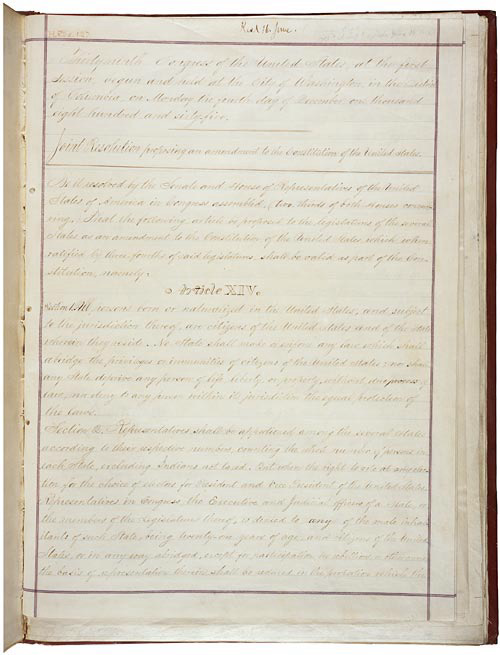 H. Res. 127
Recd 16 June.
Thirty-ninth Congress of the United States, at the first
Session, begun and held at the City of Washington, in the District
of Columbia, on Monday the fourth day of December, one thousand
eight hundred and sixty-five.
Joint Resolution proposing an amendment to the Constitution of the United States.
Be it resolved by the Senate and House of Representatives of the United
States of America in Congress assembled, (two thirds of both Houses concur-
ring,) That the following article be proposed to the legislatures of the several
States as an amendment to the Constitution of the United States, which, when
ratified by three fourths of said legislatures, shall be valid as part of the Con-
stitution, namely:
Article XIV.
Section 1. All persons born or naturalized in the United States, and subject
to the jurisdiction thereof, are citizens of the United States and of the State
wherein they reside. No State shall make or enforce any law which shall
abridge the privileges or immunities of citizens of the United States; nor shall
any State deprive any person of life, liberty, or property, without due process of
law, nor deny to any person within its jurisdiction the equal protection of
the laws.
Section 2. Representatives shall be apportioned among the several States
according to their respective numbers, counting the whole number of persons in
each State, excluding Indians not taxed. But when the right to vote at any elec-
tion for the choice of electors for President and Vice President of the United States,
Representatives in Congress, the Executive and Judicial officers of a State, or
the members of the Legislature thereof, is denied to any of the male inhabi-
tants of such State, being twenty-one years of age, and citizens of the United
States, or in any way abridged, except for participation in rebellion or other crime,
the basis of representation therein shall be reduced in the proportion which the